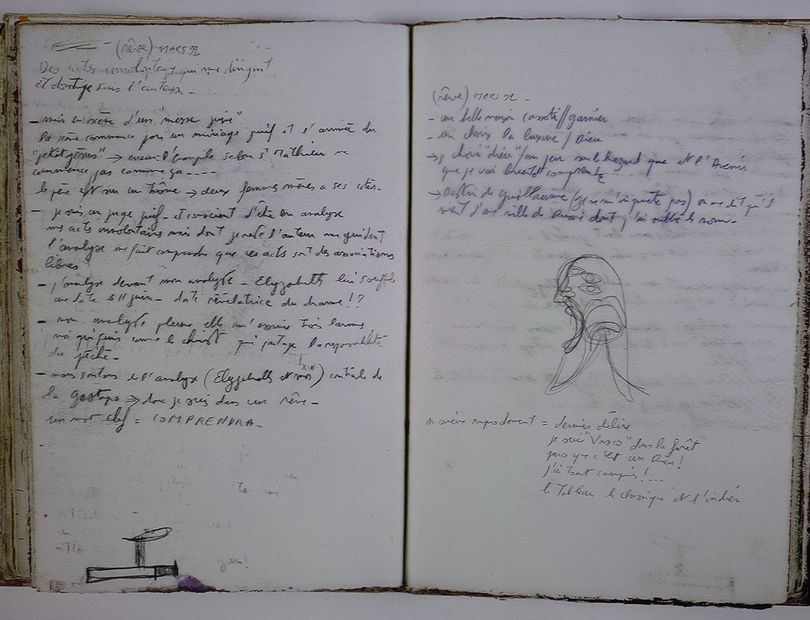 (rêve) MARS 92
Des actes involontaires qui me dirigent
et dont je suis l'auteur -
- mise en scène d'un "messe juive"
la scène commence par un mariage juif et l'arrivée du
"petit jésus" → l'évangile selon St Mathieu ne
commence pas comme ça ----
le père est sur un trône → deux femmes mères a ses côtés -
- je suis un juge juif - et conscient d'être en analyse
mes actes involontaires mais dont je l'auteur me guident
l'analyse me fait comprendre que ces acts sont des associations
libres
- j'analyse devant mon analyste - Elyzabeth lui souffle
une date le 11 juin - date révélatrice du drame !?
- mon analyste pleure, elle m'essuie trois larmes
moi qui suis comme le christ qui partage la responsabilité
du péché -
- nous sortons de l'analyse (Elyzabeth et moi) de
la gestapo → donc je suis dans un rêve -
un mot clef = COMPRENDRA -
(rêve) MARS 92 -
- une belle maison // garnier
- choix la luxure / Dieu
→ j'choisi "dieu" / un jeu sur le hazard que est l'Avenir
que je vais bientôt comprendre
→ Destin de Guillaume (je m'inquiète pas) on me dit qu'il
vient d'une ville de dont j'ai oublié le nom -
= dernier délire
je suis "Vasco" dans la forêt
parce que c'est un Dieu !
j'ai tout compris ! ---
le Tableau le classique et l'indien